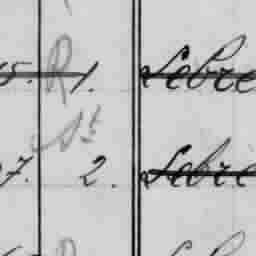 5. R 1. Lebre
St
7. 2. Lebre